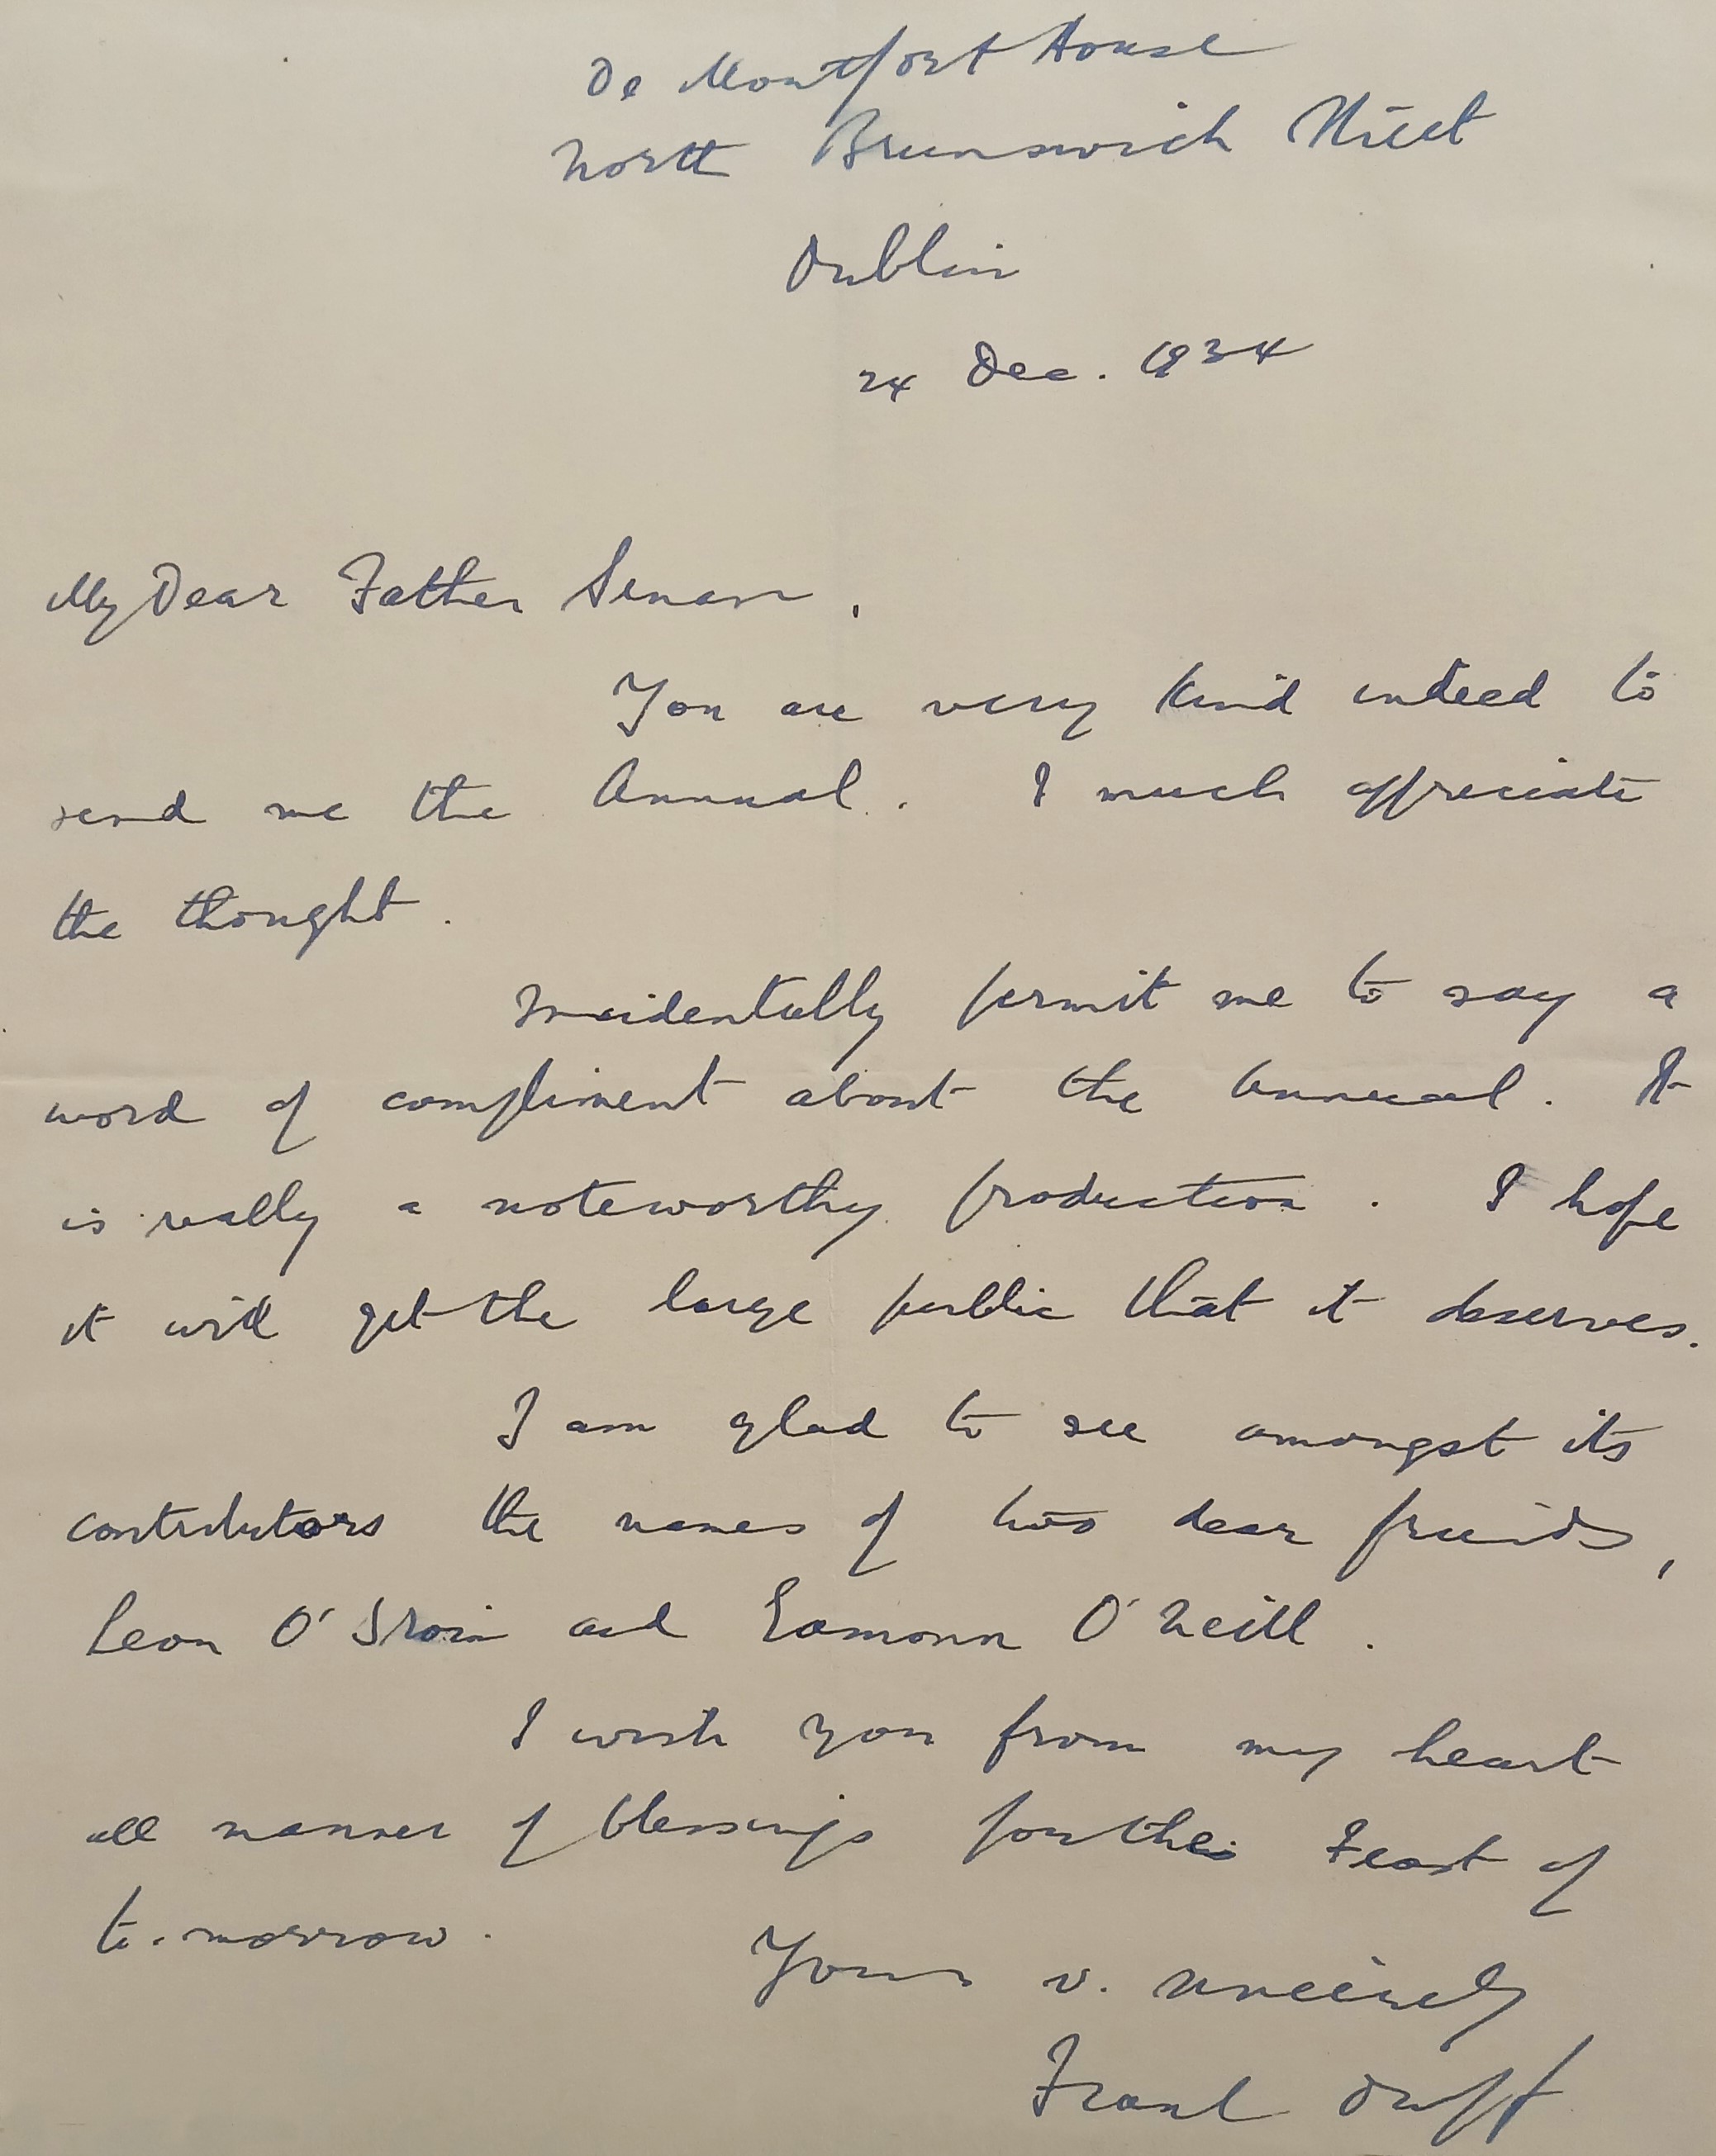 De Montfort House
North Brunswick Street
Dublin
24 Dec. 1934
My Dear Father Senan,
You are very kind indeed to
send me the Annual. I much appreciate
the thought.
Incidentally permit me to say a
word of compliment about the Annual. It
is really a noteworthy production. I hope
it will get the large public that it deserves.
I am glad to see amongst its
contributors the names of two dear friends,
Leon O'Broin and Eamonn O'Neill.
I wish you from my heart
all manner of blessings for the Feast of
to-morrow.
Yours v. sincerely
Frank Duff